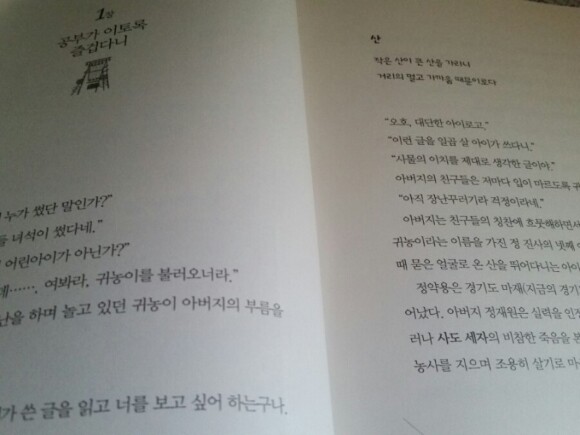 1장
공부가 이토록
즐겁다니
누가 썼단 말인가?"
녀석이 썼다네."
어린아이가 아닌가?"
……. 여봐라, 귀농이를 불러오너라."
난을 하며 놀고 있던 귀농이 아버지의 부름을
가 쓴 글을 읽고 너를 보고 싶어 하는구나.
산
작은 산이 큰 산을 가리니
거리의 멀고 가까움 때문이로다
"오호, 대단한 아이로고."
"이런 글을 일곱 살 아이가 쓰다니."
"사물의 이치를 제대로 생각한 글이야."
아버지의 친구들은 저마다 입이 마르도록 귀
"아직 장난꾸러기라 걱정이라네."
아버지는 친구들의 칭찬에 흐뭇해하면서
귀농이라는 이름을 가진 정 진사의 넷째 아
때 묻은 얼굴로 온 산을 뛰어다니는 아이
정약용은 경기도 마재(지금의 경기
어났다. 아버지 정재원은 실력을 인정
러나 사도 세자의 비참한 죽음을 본
농사를 지으며 조용히 살기로 마